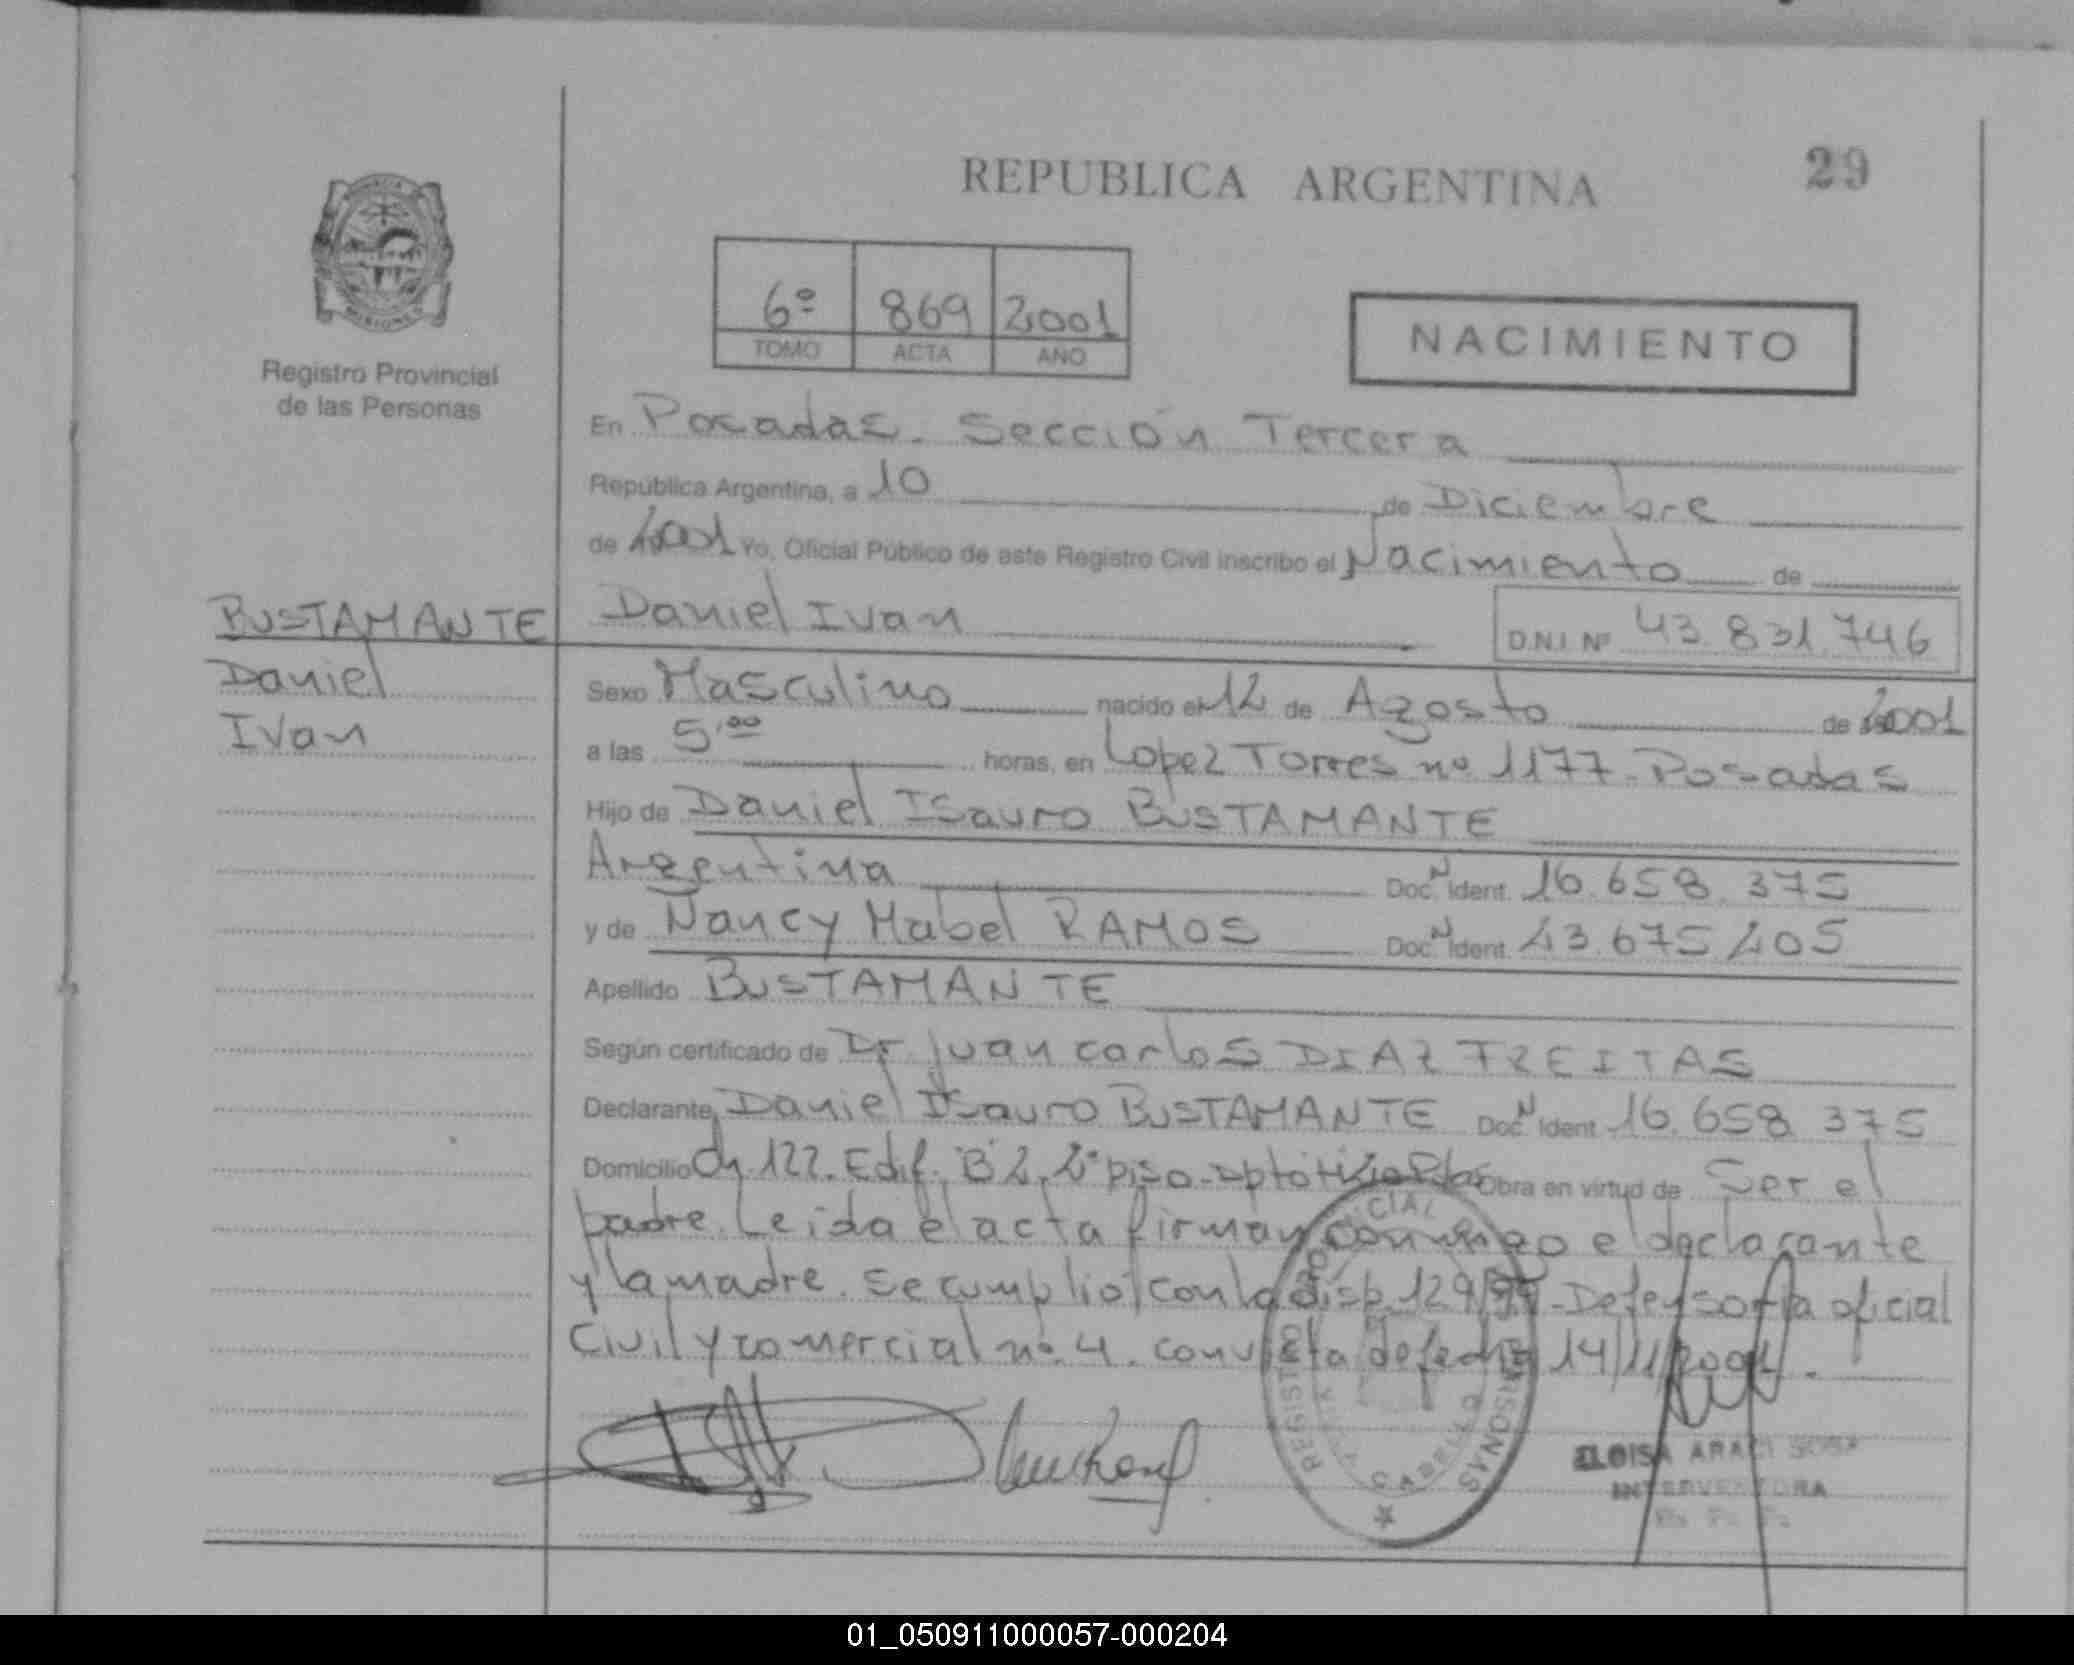 REPUBLICA ARGENTINA
29
MISIONES
Registro Provincial
de las Personas
6º 869 2001
TOMO ACTA AÑO
NACIMIENTO
En Posadas. Sección Tercera
República Argentina, a 10 de Diciembre
de 2001 Yo, Oficial Público de este Registro Civil inscribo el Nacimiento de
BUSTAMANTE
Daniel
Ivan
Daniel Ivan D.N.I. Nº 43.831.746
Sexo Masculino nacido el 12 de Agosto de 2001
a las 5,00 horas, en Lopez Torres nº 1177 - Posadas
Hijo de Daniel Isauro BUSTAMANTE
Argentina Doc. N Ident. 16.658.375
y de Nancy Mabel RAMOS Doc. N Ident. 23.675.205
Apellido BUSTAMANTE
Según certificado de Dr. Juan Carlos DIAZ FREITAS
Declarante Daniel Isauro BUSTAMANTE Doc. N Ident 16.658.375
Domicilio Ch 122. Edif. B 2, 2º piso Obra en virtud de Ser el
padre. Leida el acta firman conmigo el declarante
y la madre. Se cumplió con la disp. 129/ - Defensoría oficial
Civil y comercial nº. 4. de fecha 14/11/2001.
REGISTRO PERSONAS
CABELLO
ELOISA ARACI SOSA
INTERVENTORA
01_050911000057-000204